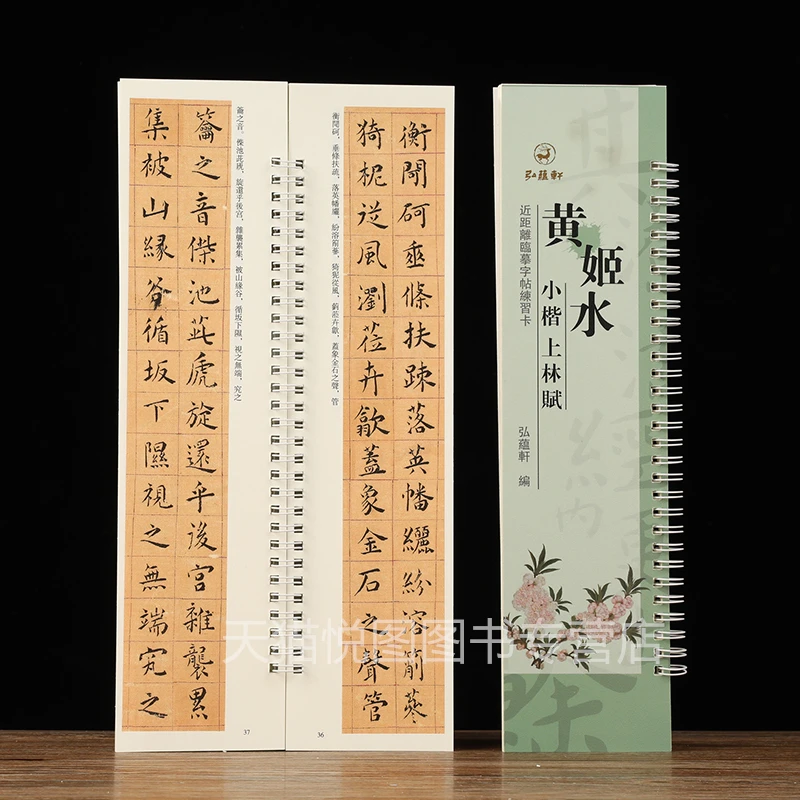 弘蘊軒
黄姬水
小楷上林賦
近距離臨摹字帖練習卡
弘蘊軒 編
衡閜砢垂條扶踈落英幡纚紛溶萷蔘
猗柅従風瀏莅卉歙蓋象金石之聲管
衡閜砢，垂條扶疏，落英幡纚，紛溶萷蔘，猗柅從風，藰莅卉歙，蓋象金石之聲，管
36
籥之音。傑池茈虒，旋還乎後宮，雜襲累集，被山緣谷，循坂下隰，視之無端，究之
籥之音傑池茈虒旋還乎後宮雜襲累
集被山縁谷循坂下隰視之無端究之
37
天猫悦图图书专营店